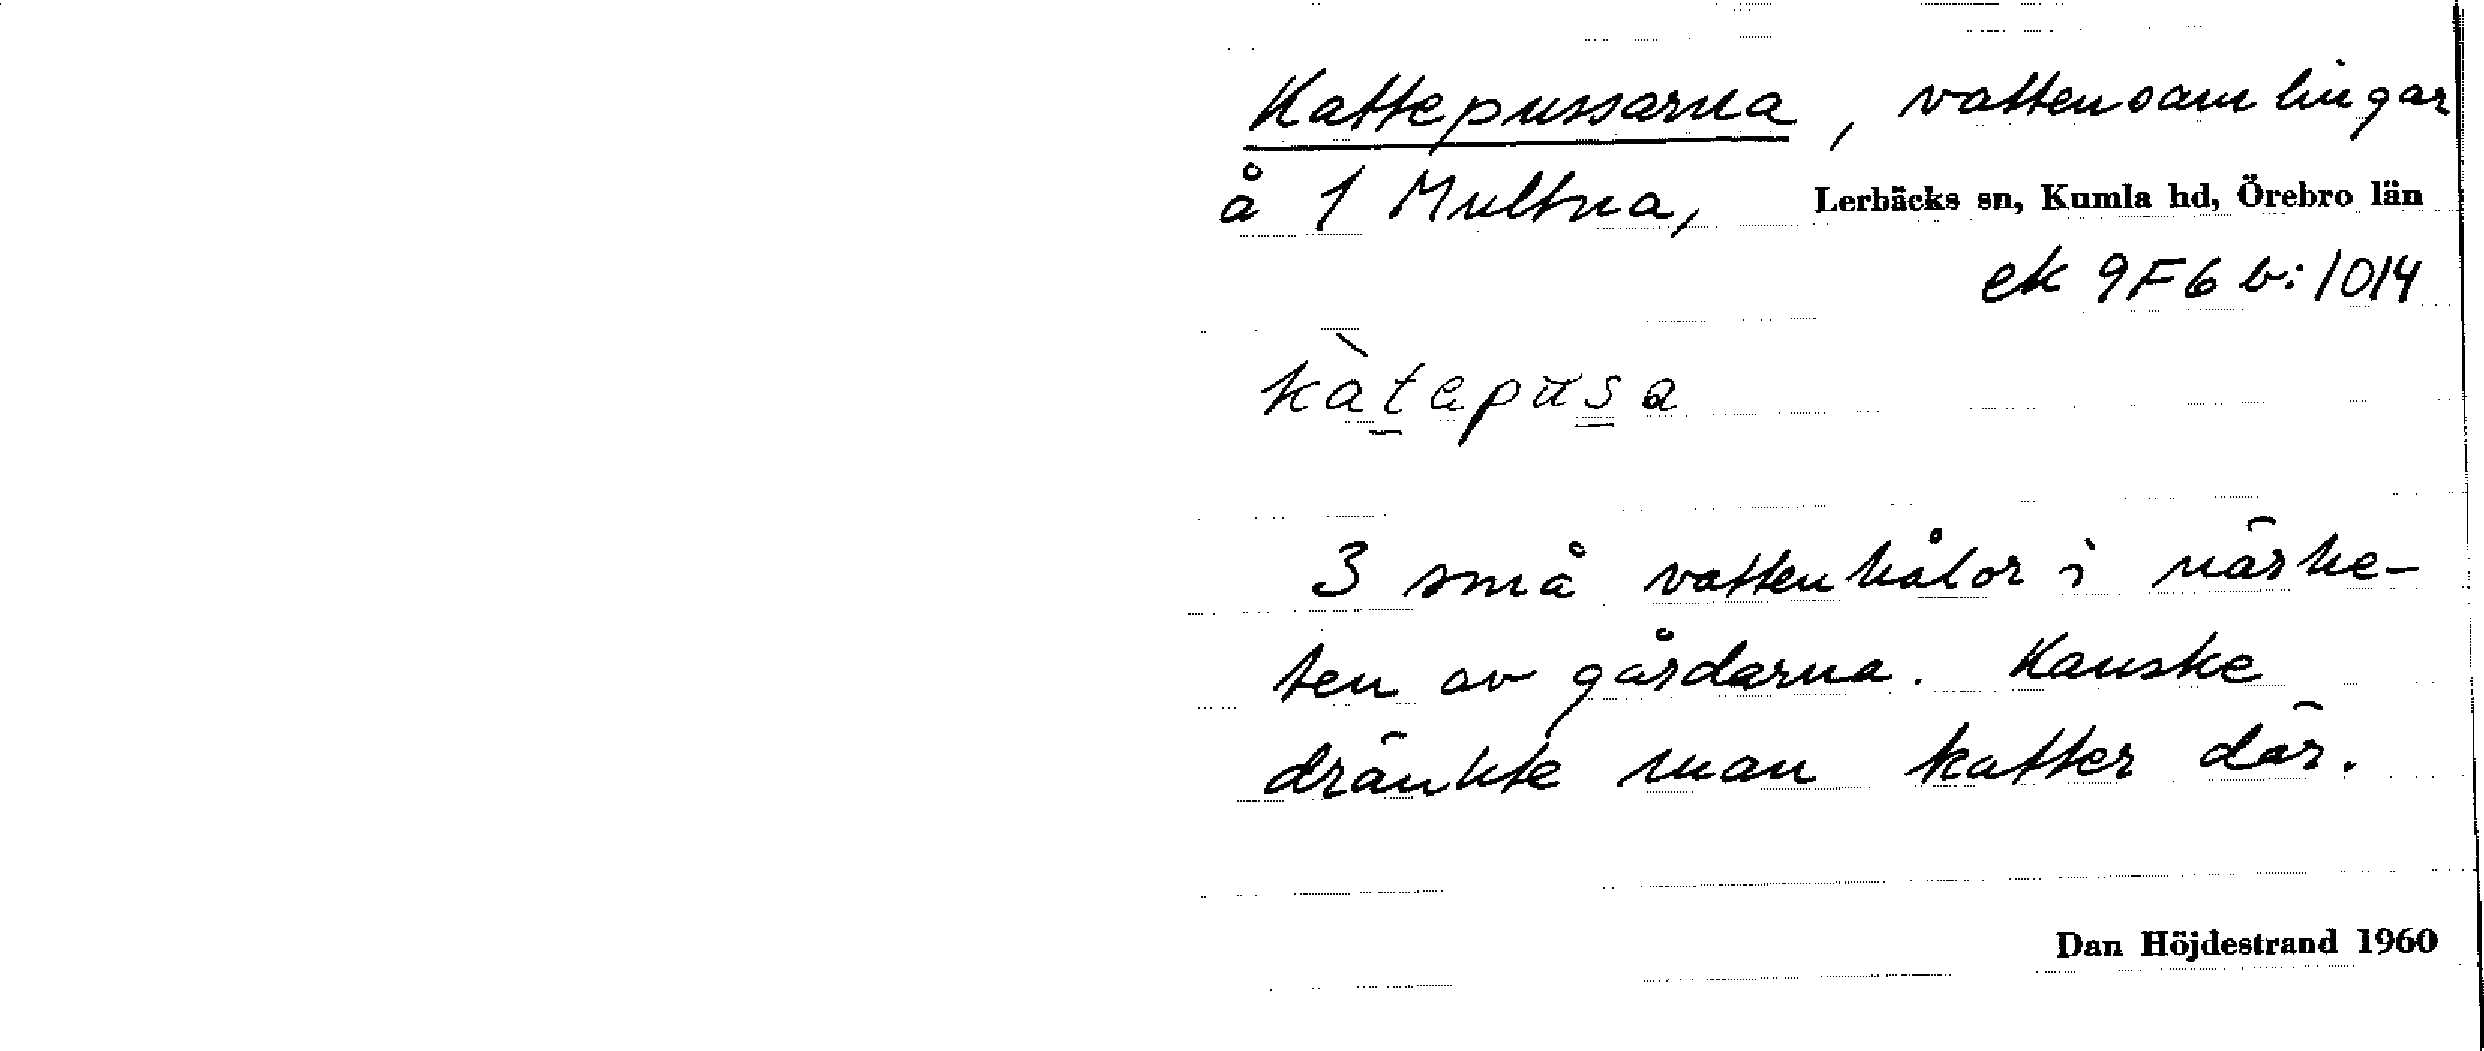 Kattepussarna, vattensamlingar
å 1 Multna, Lerbäcks sn, Kumla hd, Örebro län
ek 9F6b:1014
kàtepusa
3 små vattenhålor i närhe-
ten av gårdarna. Kanske
dränkte man katter där.
Dan Höjdestrand 1960